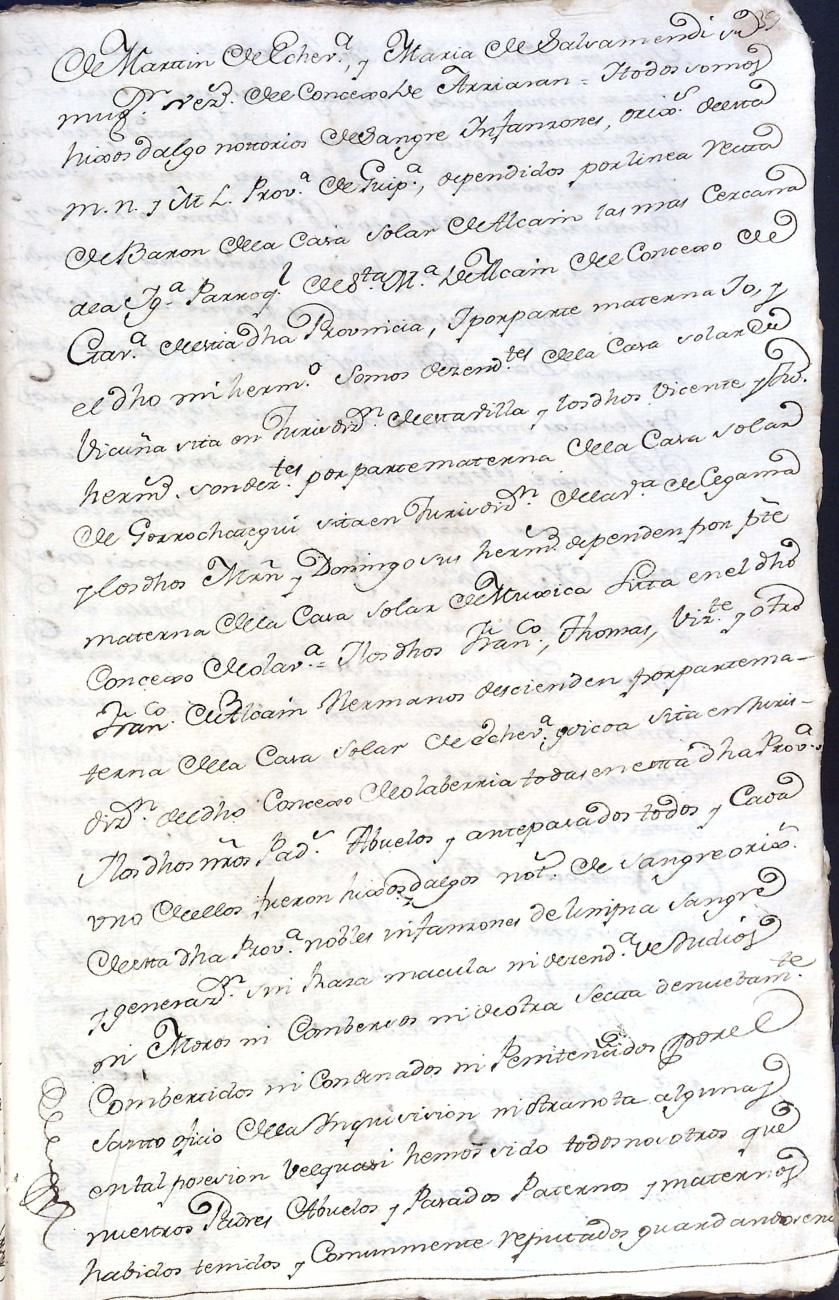 de Martin de Echev.ª, y Maria de Salsamendi su
mug.r vez.s del Concexo de Arriaran = Y todos somos
hixos dalgo nottorios de Sangre Infanzones, orix.s de esta
M. N. y M. L. Prov.ª de Guip.ª, dependidos por linea rectta
de Baron de la Casa solar de Alcain la mas cercana
de la Yg.ª Parroq.l de S.ta M.ª de Alcain del Concexo de
Gav.ª de esta dha Provincia, Y por parte materna Yo, y
el dho mi herm.o somos dezend.tes de la Casa solar de
Vicuña sita en Jurisdiz.n de esta Villa y los dhos Vicente, y
herm.s son dez.tes por parte materna de la Casa solar
de Gorrochategui sita en Jurisdiz.n de la v.ª de Cegama
y los dhos Mrñ y Domingo sus herm.s dependen por pte
materna de la Casa solar de Muxica sita en el dho
Concexo de Olav.ª = Y los dhos Fran.co, Thomas, Viz.te y otro
Fran.co de Alcain Hermanos descienden por parte ma-
terna de la Casa solar de Echev.ª, goicoa sita en Juris-
diz.n del dho Concexo de Olaberria todas en esta dha Prov.ª
Y los dhos nr̃os Pad.s Abuelos y antepasados todos y Cada
uno de ellos fueron hixosdalgos not.s de sangre orix.s
de esta dha Prov.ª nobles infanzones de limpia sangre
y generaz.n sin Raza macula ni dezend.ª de Judios
ni Moros ni Combersos ni de otra Secta denuebam.te
Combertidos ni Condenados ni Penitenciados por el
Santto oficio de la Inquisision ni otra nota alguna y
en tal posesion velquasi hemos sido todos nosotros que
nuestros Padres Abuelos y Pasados Paternos y maternos
habidos tenidos y Comunmente reputados guardandosenos